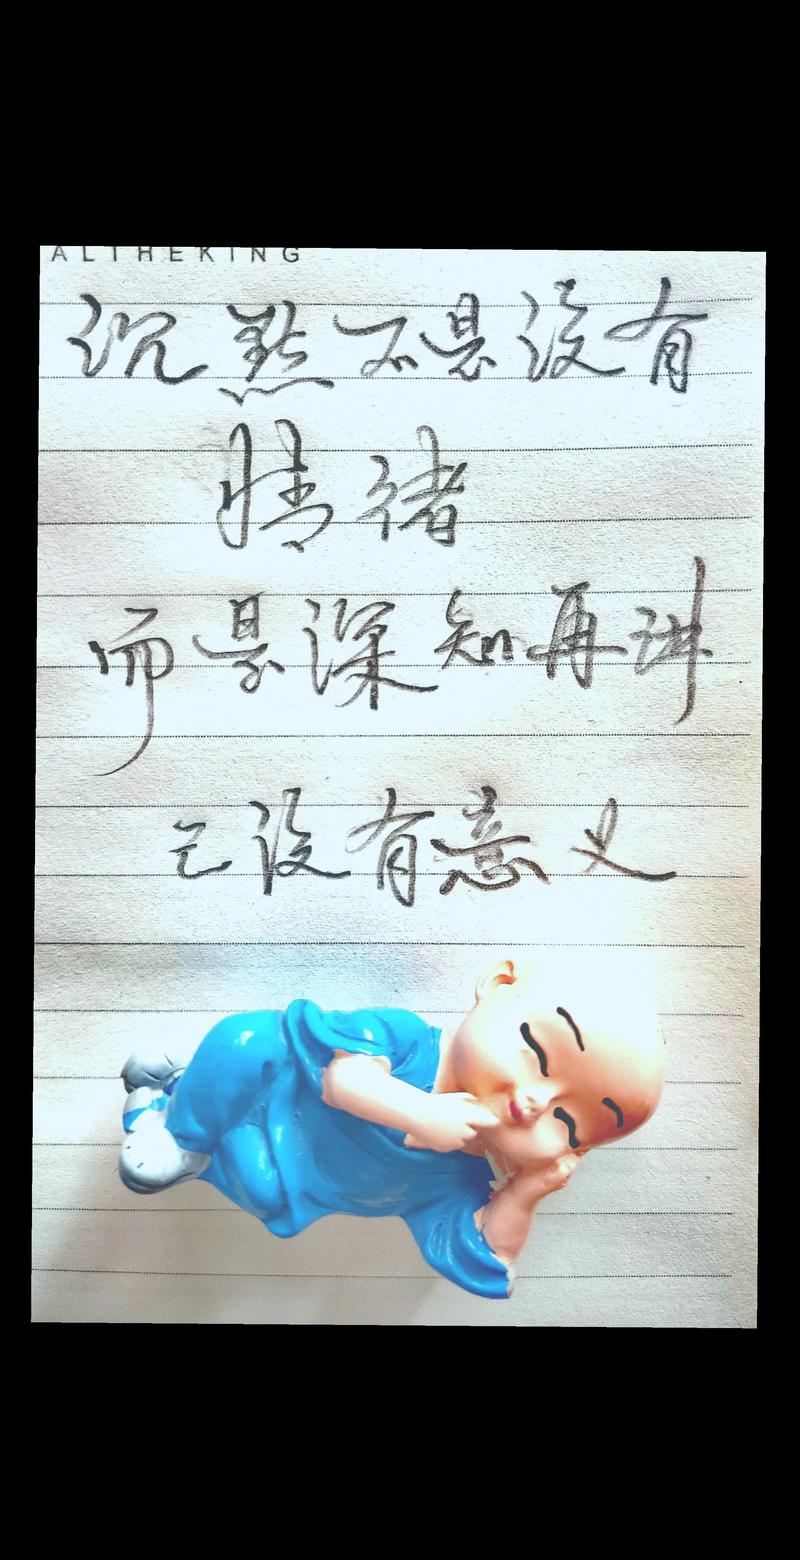 ALTHEKING
沉默不是没有
情绪
而是深知再讲
已没有意义